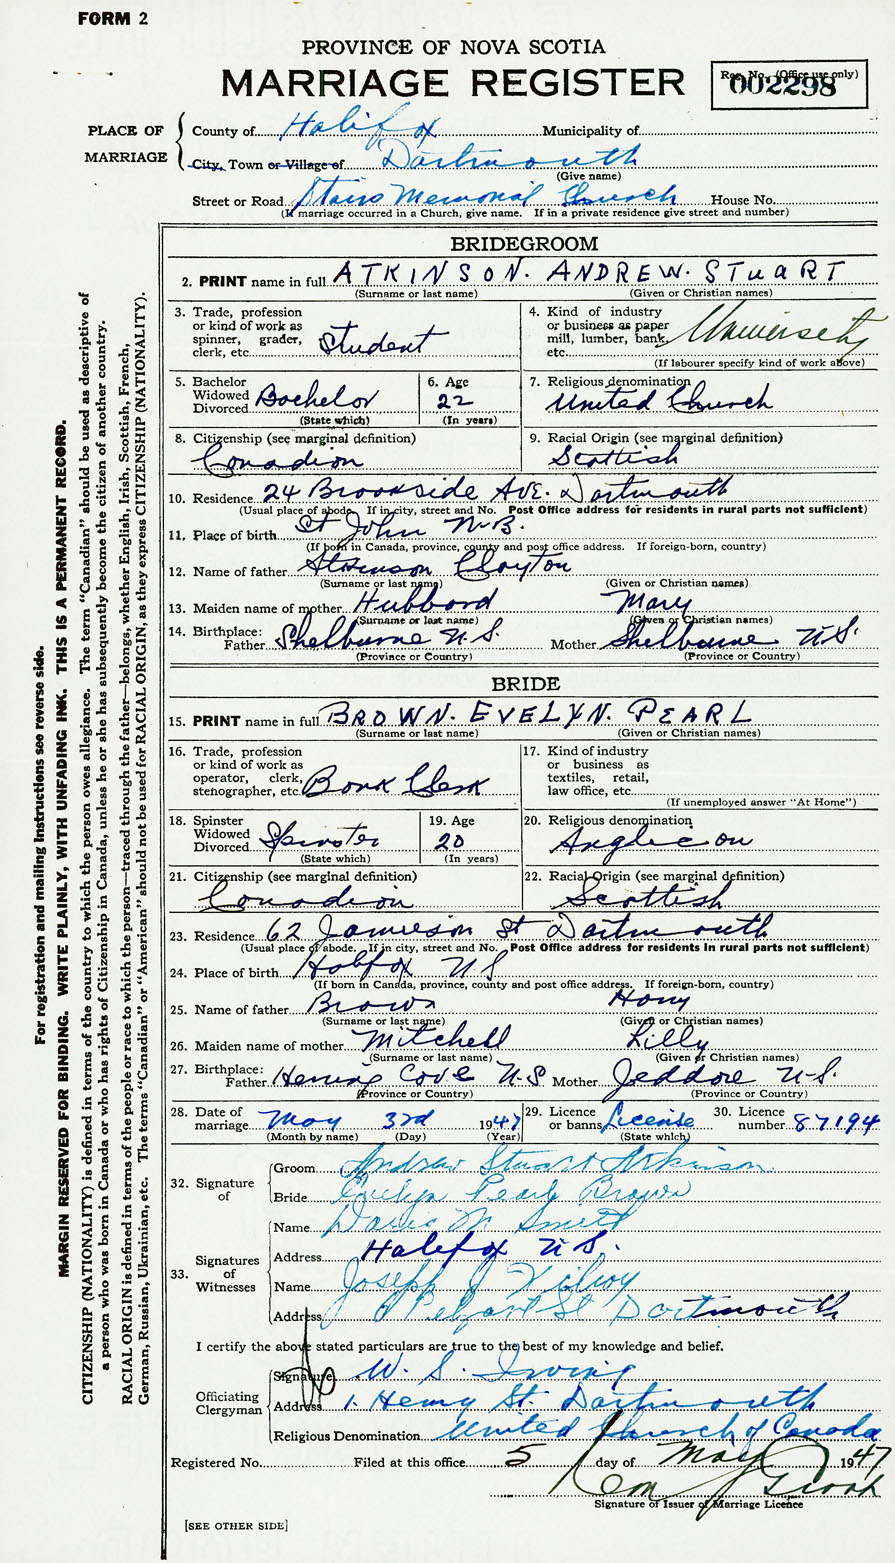 FORM 2
PROVINCE OF NOVA SCOTIA
MARRIAGE REGISTER
Reg. No. (Office use only)
002298
PLACE OF MARRIAGE
County of Halifax Municipality of
City, Town or Village of Dartmouth
(Give name)
Street or Road Stairs Memorial Church House No.
(If marriage occurred in a Church, give name. If in a private residence give street and number)
BRIDEGROOM
2. PRINT name in full ATKINSON. ANDREW. STUART
(Surname or last name) (Given or Christian names)
3. Trade, profession or kind of work as spinner, grader, clerk, etc. Student
4. Kind of industry or business as paper mill, lumber, bank, etc. University
(If labourer specify kind of work above)
5. Bachelor Widowed Divorced Bachelor
(State which)
6. Age 22
(In years)
7. Religious denomination United Church
8. Citizenship (see marginal definition) Canadian
9. Racial Origin (see marginal definition) Scottish
10. Residence 24 Brookside Ave. Dartmouth
(Usual place of abode. If in city, street and No. Post Office address for residents in rural parts not sufficient)
11. Place of birth St John N.B.
(If born in Canada, province, county and post office address. If foreign-born, country)
12. Name of father Atkinson Clayton
(Surname or last name) (Given or Christian names)
13. Maiden name of mother Hubbard Mary
(Surname or last name) (Given or Christian names)
14. Birthplace: Father Shelburne N.S. Mother Shelburne N.S.
(Province or Country) (Province or Country)
BRIDE
15. PRINT name in full BROWN. EVELYN. PEARL
(Surname or last name) (Given or Christian names)
16. Trade, profession or kind of work as operator, clerk, stenographer, etc. Bank Clerk
17. Kind of industry or business as textiles, retail, law office, etc.
(If unemployed answer "At Home")
18. Spinster Widowed Divorced Spinster
(State which)
19. Age 20
(In years)
20. Religious denomination Anglican
21. Citizenship (see marginal definition) Canadian
22. Racial Origin (see marginal definition) Scottish
23. Residence 62 Jamieson St Dartmouth
(Usual place of abode. If in city, street and No. Post Office address for residents in rural parts not sufficient)
24. Place of birth Halifax N S
(If born in Canada, province, county and post office address. If foreign-born, country)
25. Name of father Brown Harry
(Surname or last name) (Given or Christian names)
26. Maiden name of mother Mitchell Lilly
(Surname or last name) (Given or Christian names)
27. Birthplace: Father Herring Cove N.S Mother Jeddore N.S.
(Province or Country) (Province or Country)
28. Date of marriage May 3rd 1947
(Month by name) (Day) (Year)
29. Licence or banns License
(State which)
30. Licence number 87194
32. Signature of
Groom Andrew Stuart Atkinson
Bride Evelyn Pearl Brown
33. Signatures of Witnesses
Name M. Smith
Address Halifax N.S.
Name Joseph J
Address St Dartmouth
I certify the above stated particulars are true to the best of my knowledge and belief.
Officiating Clergyman
Signature W. S. Irving
Address 1. Henry St. Dartmouth
Religious Denomination United Church of Canada
Registered No. Filed at this office 5 day of May 1947
Signature of Issuer of Marriage Licence
[SEE OTHER SIDE]
For registration and mailing instructions see reverse side.
MARGIN RESERVED FOR BINDING. WRITE PLAINLY, WITH UNFADING INK. THIS IS A PERMANENT RECORD.
CITIZENSHIP (NATIONALITY) is defined in terms of the country to which the person owes allegiance. The term "Canadian" should be used as descriptive of
a person who was born in Canada or who has rights of Citizenship in Canada, unless he or she has subsequently become the citizen of another country.
RACIAL ORIGIN is defined in terms of the people or race to which the person—traced through the father—belongs, whether English, Irish, Scottish, French,
German, Russian, Ukrainian, etc. The terms "Canadian" or "American" should not be used for RACIAL ORIGIN, as they express CITIZENSHIP (NATIONALITY).